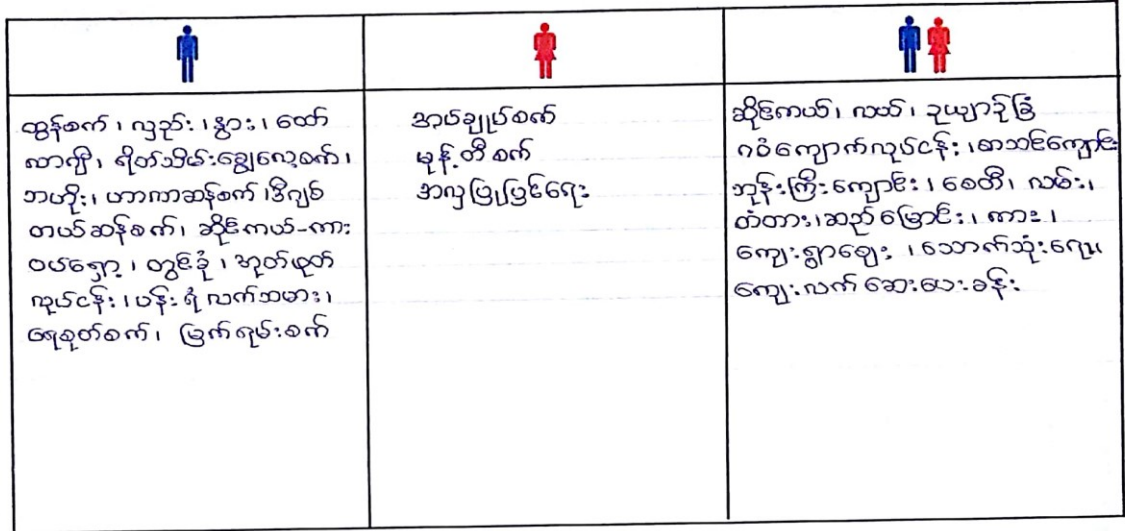 ထွန်စက်၊ လှည်း၊ နွား၊ ထော်
လာဂျီ၊ ရိတ်သိမ်းခြွေလှေ့စက်၊
ဘဟိုး၊ ဟာကာဆန်စက်၊ ဒီဂျစ်
တယ်ဆန်စက်၊ ဆိုင်ကယ်-ကား
ဝပ်ရှော့၊ တွင်ခုံ၊ အုတ်ဖုတ်
လုပ်ငန်း၊ ပန်းရံ လက်သမား၊
ရေစုတ်စက်၊ မြက်ရမ်းစက်
အပ်ချုပ်စက်
မုန့်တီစက်
အလှပြုပြင်ရေး
ဆိုင်ကယ်၊ လယ်၊ ဥယျာဉ်ခြံ
ဂဝံကျောက်လုပ်ငန်း၊ စာသင်ကျောင်း
ဘုန်းကြီးကျောင်း၊ စေတီ၊ လမ်း၊
တံတား၊ ဆည်မြောင်း၊ ကား၊
ကျေးရွာဈေး၊ သောက်သုံးရေ၊
ကျေးလက်ဆေးပေးခန်း